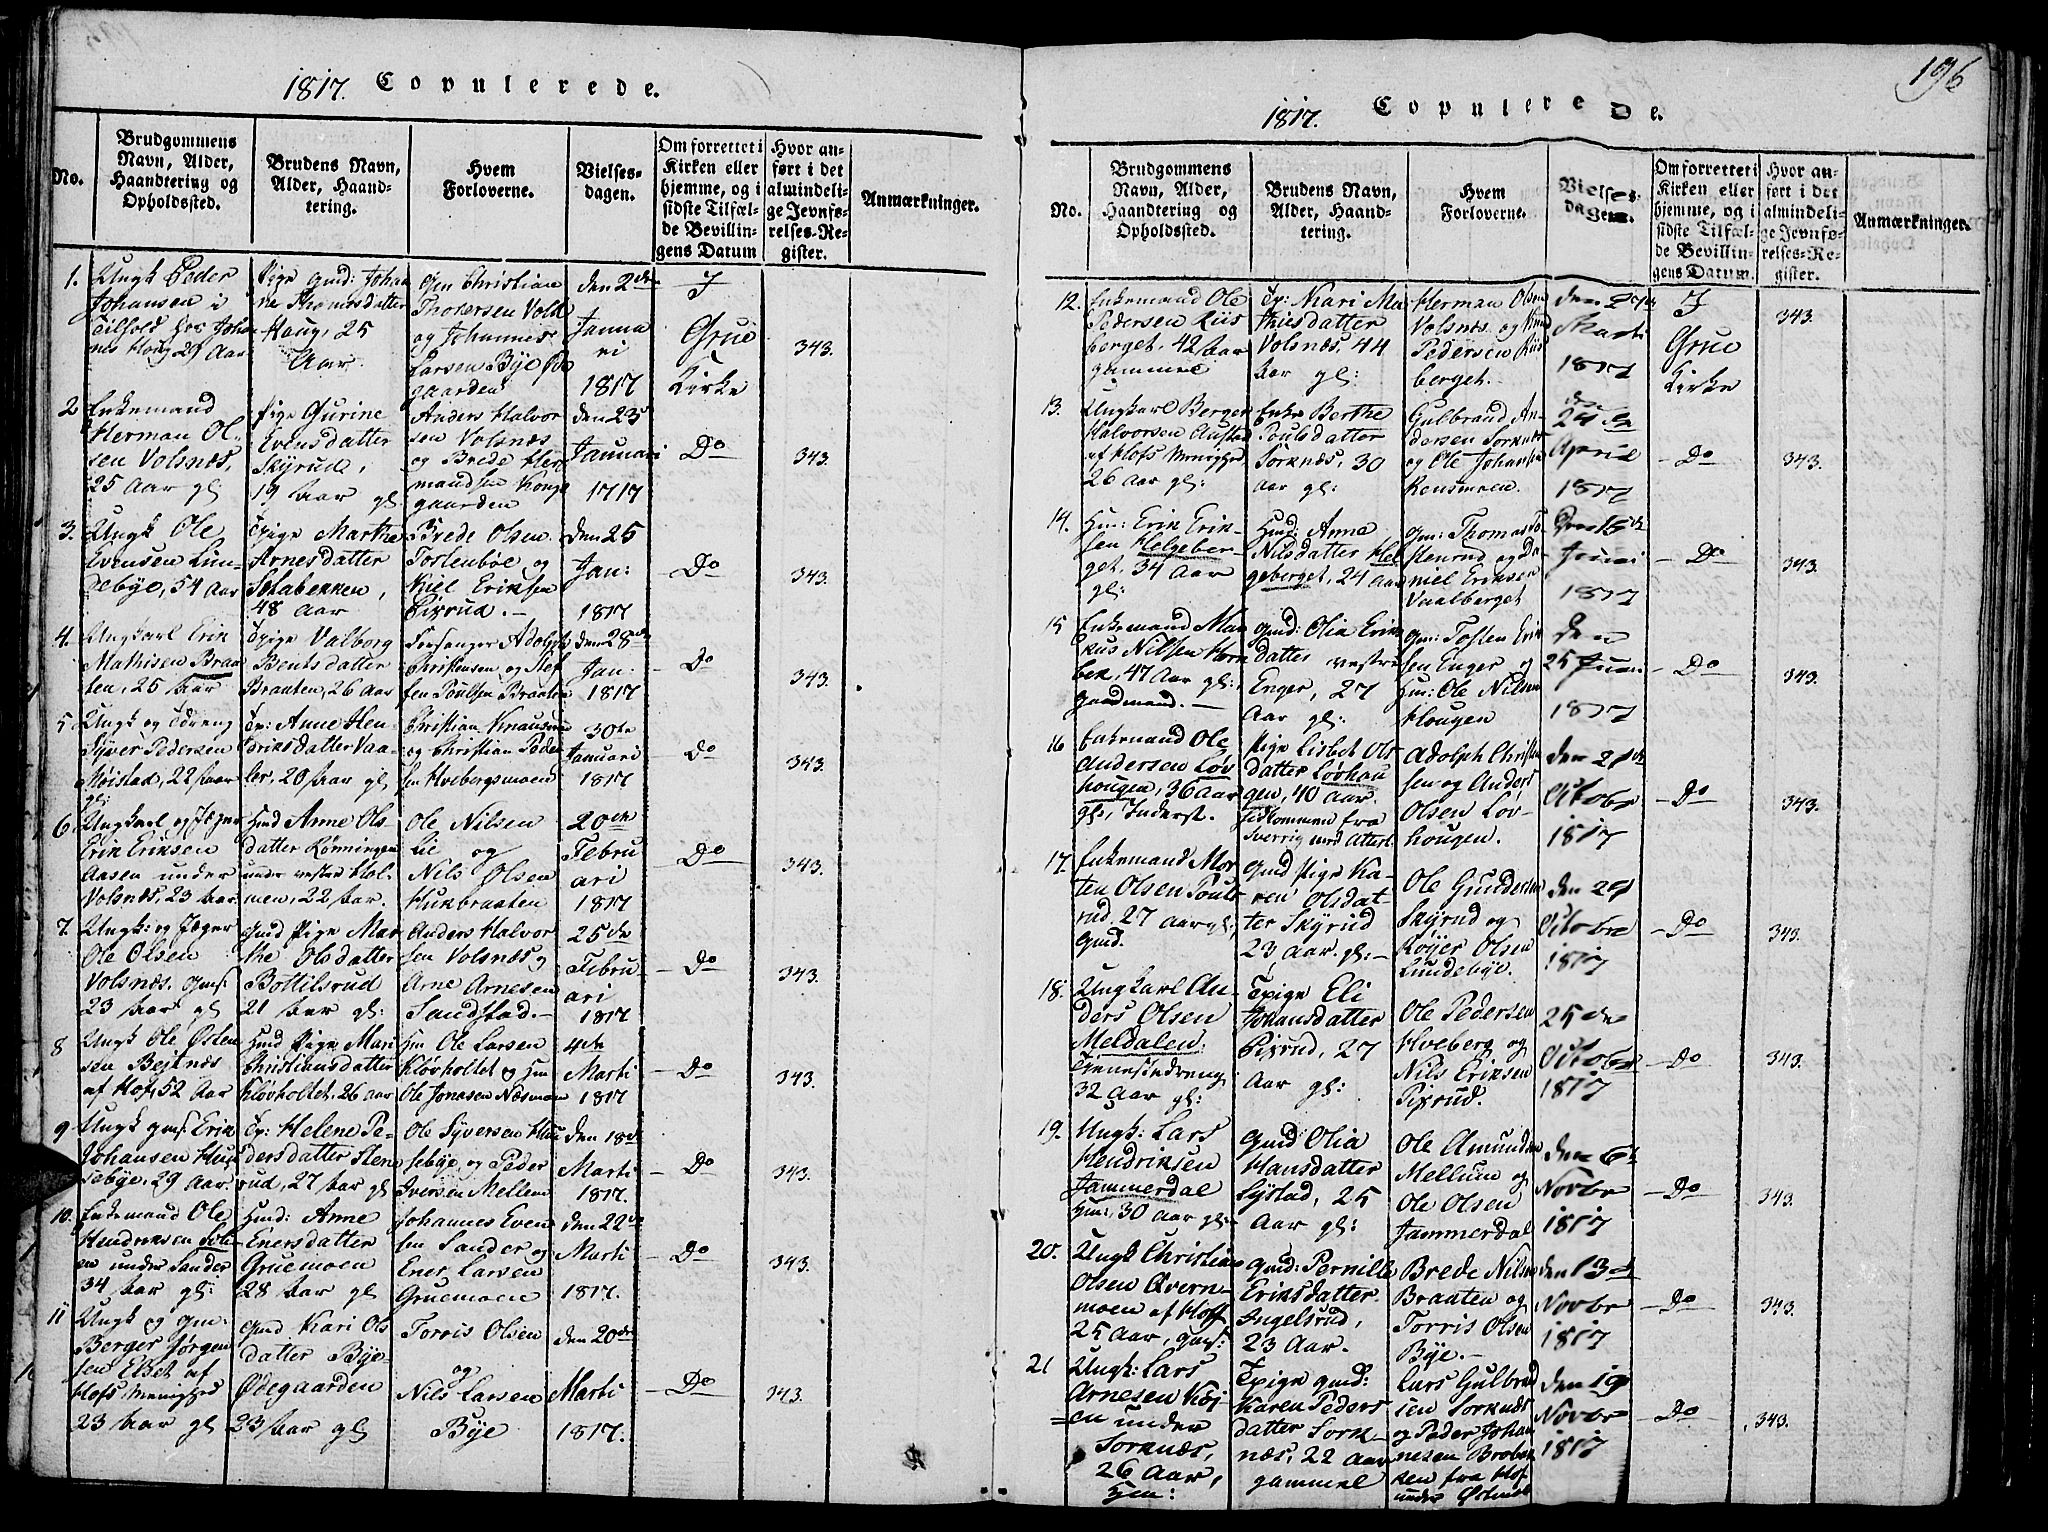 1817. Copulerede.
No.
Brudgommens
Navn, Alder,
Haandtering og
Opholdssted.
Brudens Navn,
Alder, Haand-
tering.
Hvem
Forloverne.
Vielses-
dagen.
Om forrettet i
Kirken eller
hjemme, og i
sidste Tilfæl-
de Bevillin-
gens Datum
Hvor an-
ført i det
almindeli-
ge Jevnfø-
relses-Re-
gister.
Anmærkninger.
1.
Ungk Peder
Johansen i
hos Johan
nes Houg 29 Aar
Pige gmd: Johan
ne Thomesdatter
Houg, 25
Aar.
Christian
Thoresen Vold
og Johannes
Larsen Bye
gaarden
den 2den
Janua
ri
1817
I
Grue
Kirke
343.
2
Enkemand
Herman Ol-
sen Volsnæs,
25 Aar gl
Pige Gurine
Evensdatter
Skyrud,
19 Aar gl
Anders Halvor
sen Volsnæs
og Brede Her
mandsen Konge
gaarden
den 23
Januari
1717
Do
343.
3.
Ungk Ole
Evensen Lun-
debye, 54 Aar
Tpige Marthe
Arnesdatter
Skabekken,
48 Aar
Brede Olsen
Tostenbøe og
Kiel Eriksen
Pixrud.-
den 25
Jan:
1817
Do
343.
4.
Ungkarl Erik
Mathisen Braa
ten, 25 Aar
Tpige Valborg
Bentsdatter
Braaten, 26 Aar
Forsanger Adolph
Christensen og Stef
fen Poulsen Braaten
den 28de
Jan:
1817
Do
343.
5
Ungk og Tdreng
Syver Pedersen
Møistad, 22 Aar
gl:
Tp: Anne Hen-
driksdatter Vaa-
ler, 20 Aar gl
Christian Knausen
og Christian Peder
sen Hvebergsmoen
30te
Januari
1817
Do
343.
6.
Ungkarl og Jæger
Erik Eriksen
Aasen under
Volsnæs, 23 Aar
Hmd Anne Ols-
datter Rønningen
under vestre Hol-
men, 22 Aar.
Ole Nilsen
Lie og
Nils Olsen
Hukbraaten
20de
Febru
ari
1817
Do
343.
7.
Ungk: og Jæger
Ole Olsen
Volsnæs. gmS:
23 Aar gl
gmd Pige Mar
the Olsdatter
Bottilsrud
21 Aar gl:
Anders Halvor
sen Volsnæs og
Arne Arnesen
Sandstad.-
25de
Febru
ari
1817
Do
343.
8
Ungk Ole Østen
sen Beitnæs
af Hof, 52 Aar
Hmd Pige Mari
Christiansdatter
Kløvholtet, 26 aar
Hm Ole Larsen
Kløvholtet og Hm
Ole Jonasen Næsmoen
4de
Marti
1817
Do
343.
9
Ungk gmS. Erik
Johansen Huu
sebye, 29 Aar.
Tp: Helene Pe-
dersdatter Sten
rud, 27 Aar gl
Ole Syversen Huu
sebye, og Peder
Iversen Mellem
den 18de
Marti
1817.
Do
343.
10.
Enkemand Ole
Hendriksen
en under Sander
34 Aar gl:
Hmd: Anne
Enersdatter
Gruemoen
28 Aar gl
Johannes Even
sen Sander og
Ener Larsen
Gruemoen
den 22de
Marti
1817.
Do
343.
11
Ungk og gm:
Berger Jørgen
sen Elset af
Hofs Menighed
23 Aar gl
gmd Kari Ols
datter Bye-
Ødegaarden
23 Aar gl
Torris Olsen
og
Nils Larsen
Bye
den 20de
Marti
1817.
Do
343.
196
1817. Copulerede.
No.
Brudgommens
Navn, Alder,
Haandtering og
Opholdssted.
Brudens Navn,
Alder, Haand-
tering.
Hvem
Forloverne.
Vielses-
dagen.
Om forrettet i
Kirken eller
hjemme, og i
sidste Tilfæl-
de Bevillin-
gens Datum.
Hvor an-
ført i det
almindeli-
ge Jevnfø-
relses-Re-
gister.
Anmærkninger.
12.
Enkemand Ole
Pedersen Riis
berget, 42 Aar
gammel
Tp: Mari Ma
thisdatter
Volsnæs, 44
Aar gl:
Herman Olsen
Volsnæs og
Pedersen Riis
berget.
den
Marti
1817
I
Grue
Kirke
343.
13.
Ungkarl Berger
Halvorsen
af Hofs Menighed
26 Aar gl:
Enke Berthe
Poulsdatter
Sorknæs, 30
Aar gl:
Gulbrand An-
dersen Sorknæs
og Ole Johansen
Rensmoen.
den
24de
April
1817
Do
343.
14.
Hm: Erik Erik-
sen Helgeber-
get, 34 Aar
gl:
Hmd: Anne
Nilsdatter Hel
geberget, 24 Aar
gm: Thomas
og Da-
niel Eriksen
Vaalberget
Den 15de
Juni
1817
Do
343.
15
Enkemand Mar
kus Nilsen Horn
bek, 47 Aar gl:,
gaardmand.-
gmd: Olia Erik
datter vestre
Enger, 27
Aar gl:
gm: Tosten Erik
sen Enger og
Hm: Ole Nilsen
Hougen
Den
25 Juni
1817
Do
343.
16
Enkemand Ole
Andersen Løv
hougen, 36 Aar
gl:, Inderst.
Pige Lisbet Ols
datter Løvhau
gen, 40 Aar.
fra
Sverrig med Attest
Adolph Christen
sen og Anders
Olsen Løv-
hougen.
den 21de
Octobr
1817
Do
343.
17.
Enkemand Mor
ten Olsen Pouls
rud. 27 Aar gl:
gmd.
gmd Pige Ka-
ren Olsdat-
ter Skyrud
23 Aar. gl:-
Ole Gundersen
Skyrud og
Røyer Olsen
Lundebye.
den 21
Octobre
1817
Do
343.
18.
Ungkarl An-
ders Olsen
Meldalen,
Tjenestedreng
32 Aar gl:
Tpige Eli
Johansdatter
Pixrud, 27
Aar gl:
Ole Pedersen
Hveberg og
Nils Eriksen
Pixrud.
25de
Octobr
1817
Do
343.
19.
Ungk: Lars
Hendriksen
Jammerdal
Hm:, 30 Aar gl:
gmd Olia
Hansdatter
Lystad, 25
Aar gl:
Ole Amundsen
Mellum og
Ole Olsen
Jammerdal
den 6te
Novbr
1817
Do
343.
20.
Ungk Christian
Olsen Qvern-
moen af Hoff
25 Aar, gmS:
gmd: Pernille
Eriksdatter
Ingelsrud,
23 Aar.
Brede Nilsen
Braaten og
Torris Olsen
Bye.-
den 13de
Novbr
1817
Do
343.
21
Ungk: Lars
Arnesen Køj-
en under
Sorknæs,
26 Aar,
Tpige gmd:
Karen Peders
datter Sork-
næs, 22 Aar
gammel
Lars Gulbrand
sen Sorknæs
og Peder Johan
nesen Brobek
ken fra Hof
under
den 19
Novbr
1817
Do
343.